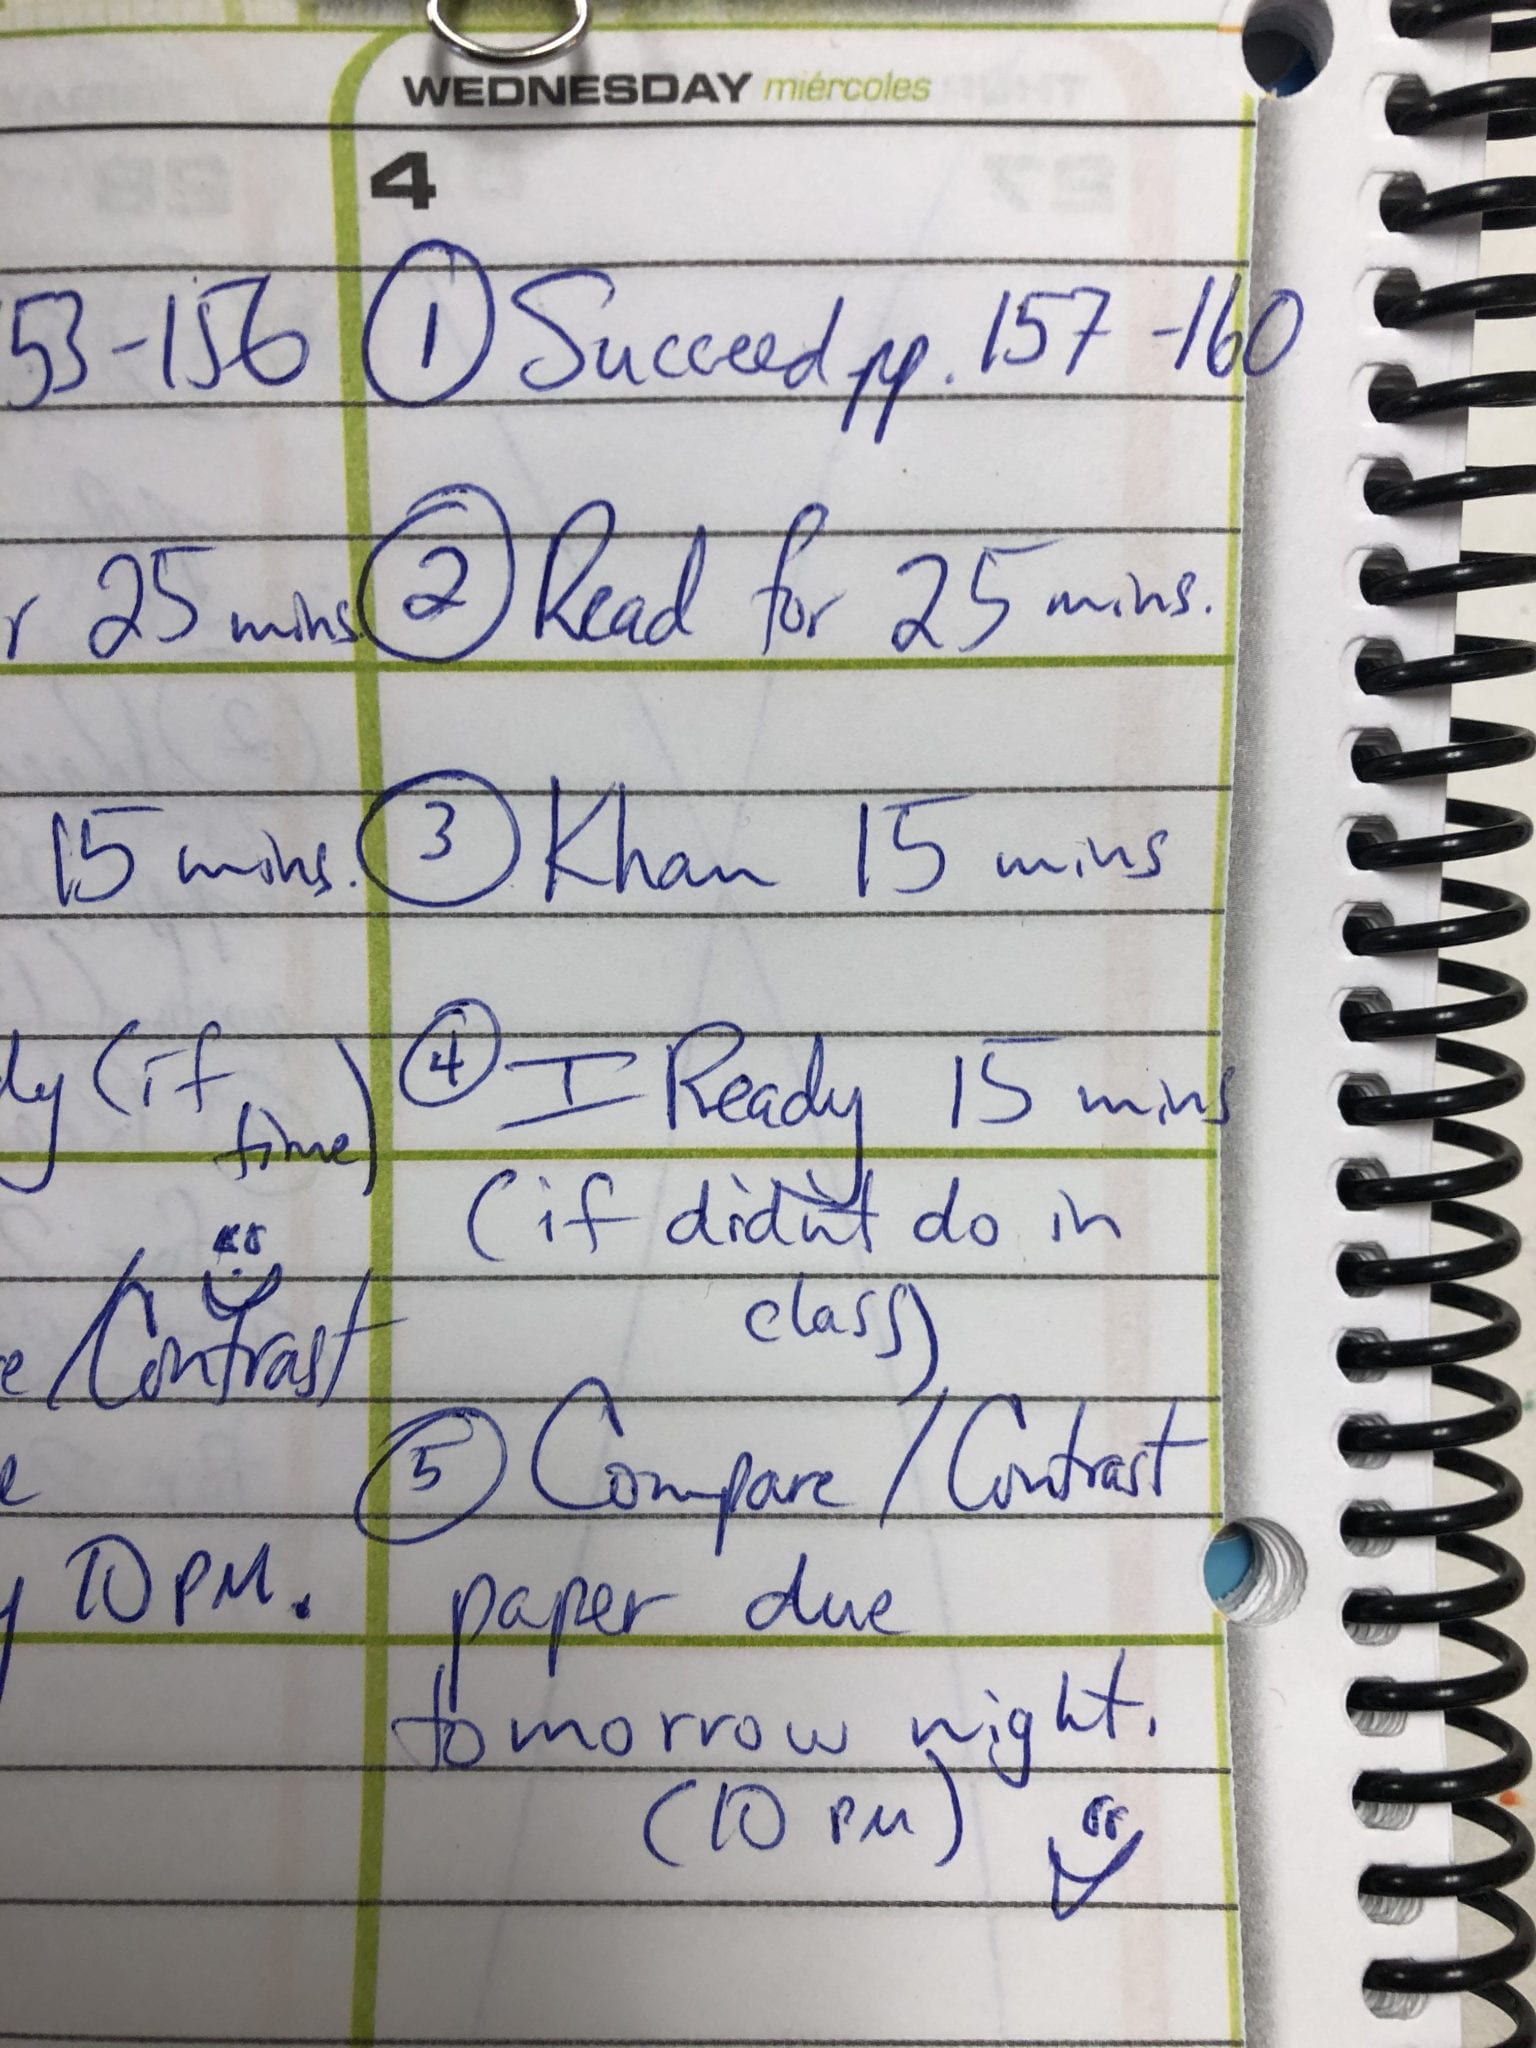 WEDNESDAY miércoles
4
53-156
25 mins.
15 mins.
(if
time)
/Contrast
10 PM.
1 Succeed pp. 157-160
2 Read for 25 mins.
3 Khan 15 mins
4 I Ready 15 mins
(if didn't do in
class)
5 Compare / Contrast
paper due
tomorrow night.
(10 PM)